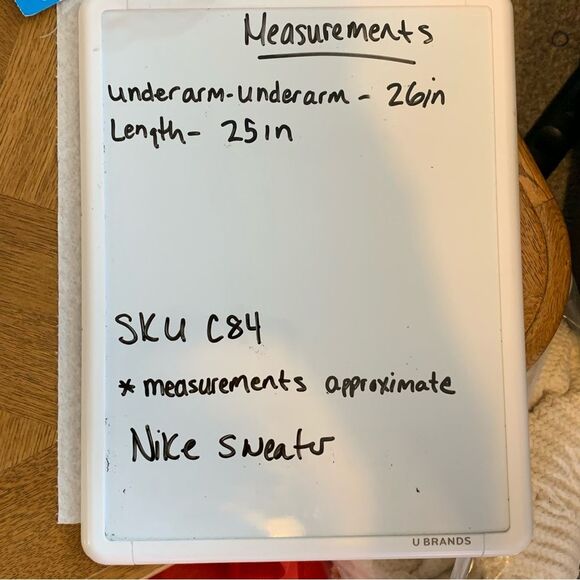 Measurements
underarm-underarm - 26in
Length- 25in
SKU C84
* measurements approximate
Nike sweater
U BRANDS